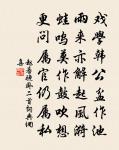 戲學韓公盆作池
雨來亦解起風漪
蛙鳴莫作鼓吹想
更問屬官仍屬私
趙蕃 二首